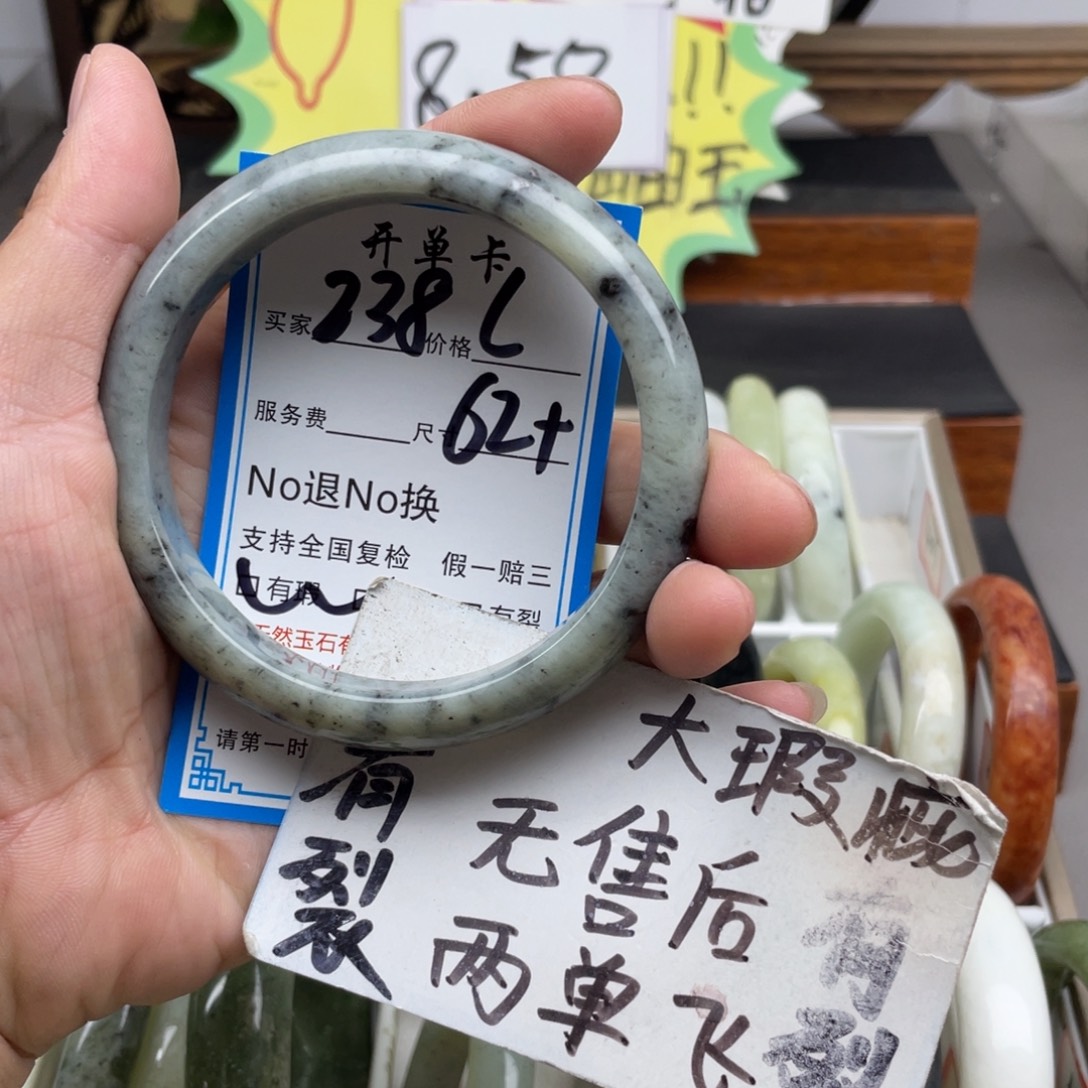 8.58
!!
开单卡
买家 238 价格 L
服务费 尺寸 62+
No退No换
支持全国复检 假一赔三
口有瑕 有裂
天然玉石有
请第一时
大瑕疵
有裂
无售后
有裂
两单飞